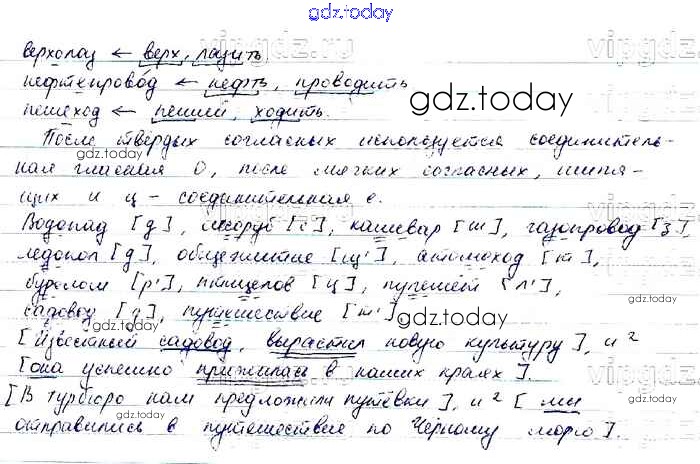 gdz.today
верхолаз ← верх, лазить
нефтепровод ← нефть, проводить
пешеход ← пеший, ходить.
gdz.today
После твёрдых согласных используется соединитель-
gdz.today
ная гласная О, после мягких согласных, шипя-
щих и ц - соединительная е.
Водопад [д], лесоруб [с], кашевар [ш], газопровод [з],
ледокол [д], общежитие [щ'], атомоход [м],
gdz.today
бурелом [р'], птицелов [ц], пулемёт [л'],
садовод [д], путешествие [т']
gdz.today
gdz.today
[Известный садовод, вырастил новую культуру], и ²
[она успешно прижилась в наших краях].
[В турбюро нам предложили путёвки], и ² [мы
gdz.today
gdz.today
отправились в путешествие по Чёрному морю].
vipgdz.ru